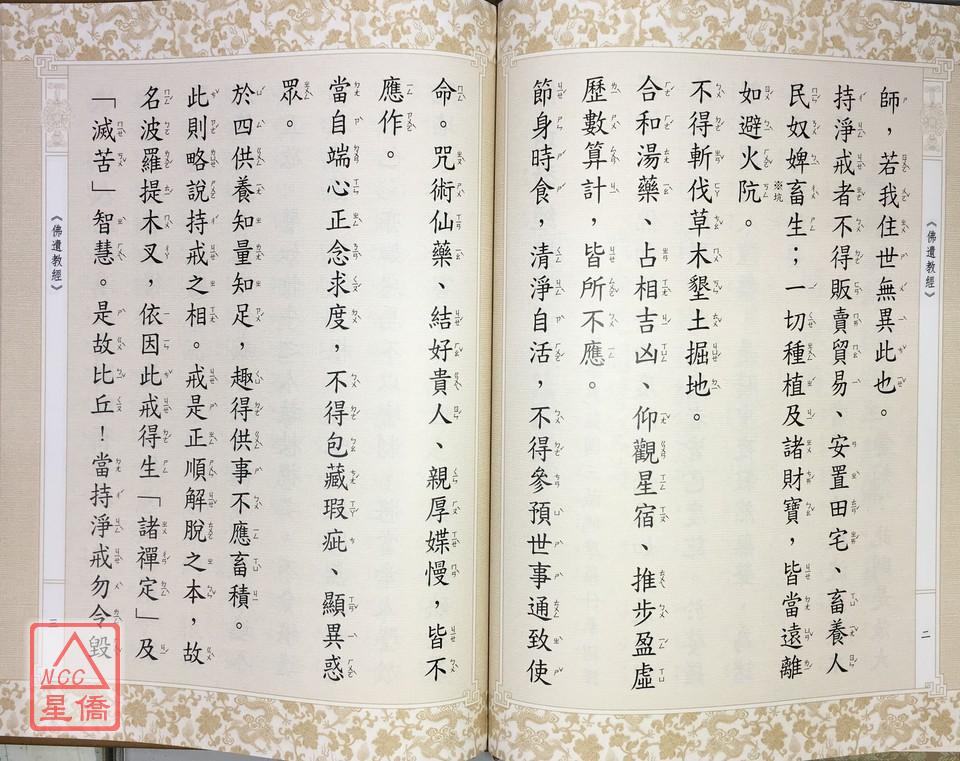 《佛遺教經》
二
師，若我住世無異此也。
持淨戒者不得販賣貿易、安置田宅、畜養人
民奴婢畜生；一切種植及諸財寶，皆當遠離
如避火阬。
※坑
不得斬伐草木墾土掘地。
合和湯藥、占相吉凶、仰觀星宿、推步盈虛
歷數算計，皆所不應。
節身時食，清淨自活，不得參預世事通致使
命。咒術仙藥、結好貴人、親厚媟慢，皆不
應作。
當自端心正念求度，不得包藏瑕疵、顯異惑
眾。
於四供養知量知足，趣得供事不應畜積。
此則略說持戒之相。戒是正順解脫之本，故
名波羅提木叉，依因此戒得生「諸禪定」及
「滅苦」智慧。是故比丘！當持淨戒勿令毀
《佛遺教經》
三
NCC
星僑